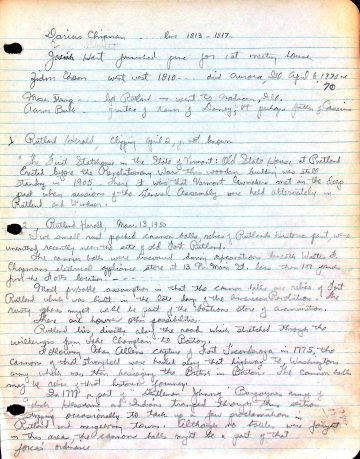 Darius Chipman - - lived 1813-1817
Josiah Hart furnished pine for 1st meeting house
went west 1810 - - died Aurora, Ill April 6, 1870 or
70
Rutland - went to Madison,
Aaron Bull
1. Rutland Herald, Clipping April 2, yr not known
"The First Statehouse in the State of Vermont: Old State House at Rutland
Erected before the Revolutionary War this wooden building was still
standing in 1905. Here it was that Vermont lawmakers met in the days
when sessions of the General Assembly were held alternately in
Rutland and Windsor."
2. Rutland Herald, Mar. 13, 1950
Two small rust pocked cannon balls, relics of Rutland's historic past, were
unearthed recently near the site of old Fort Rutland.
The cannon balls were discovered during operations beneath Walter H.
Chapman's electrical appliance store at 13 N. Main St. less than 100 yards
from the fort's location.
Most probable assumption is that the cannon balls are relics of Fort
Rutland which was built in the late days of the American Revolution. The
rusty spheres might well be part of the station's store of ammunition.
There are however other possibilities.
Rutland lies directly along the road which stretched through the
wilderness from Lake Champlain to Boston.
Following Ethan Allen's capture of Fort Ticonderoga in 1775, the
cannon of that stronghold were hauled along that highway to Washington's
army which was then besieging the British in Boston. The cannon balls
may be relics of that historic journey.
In 1777 a part of "Gentleman Johnny" Burgoyne's army of
British, Hessians and Indians tramped through this section
stopping occasionally to tack up a few proclamations in
Rutland and neighboring towns. Although no battles were fought
in this area, the cannon balls might be a part of that
force's ordnance.